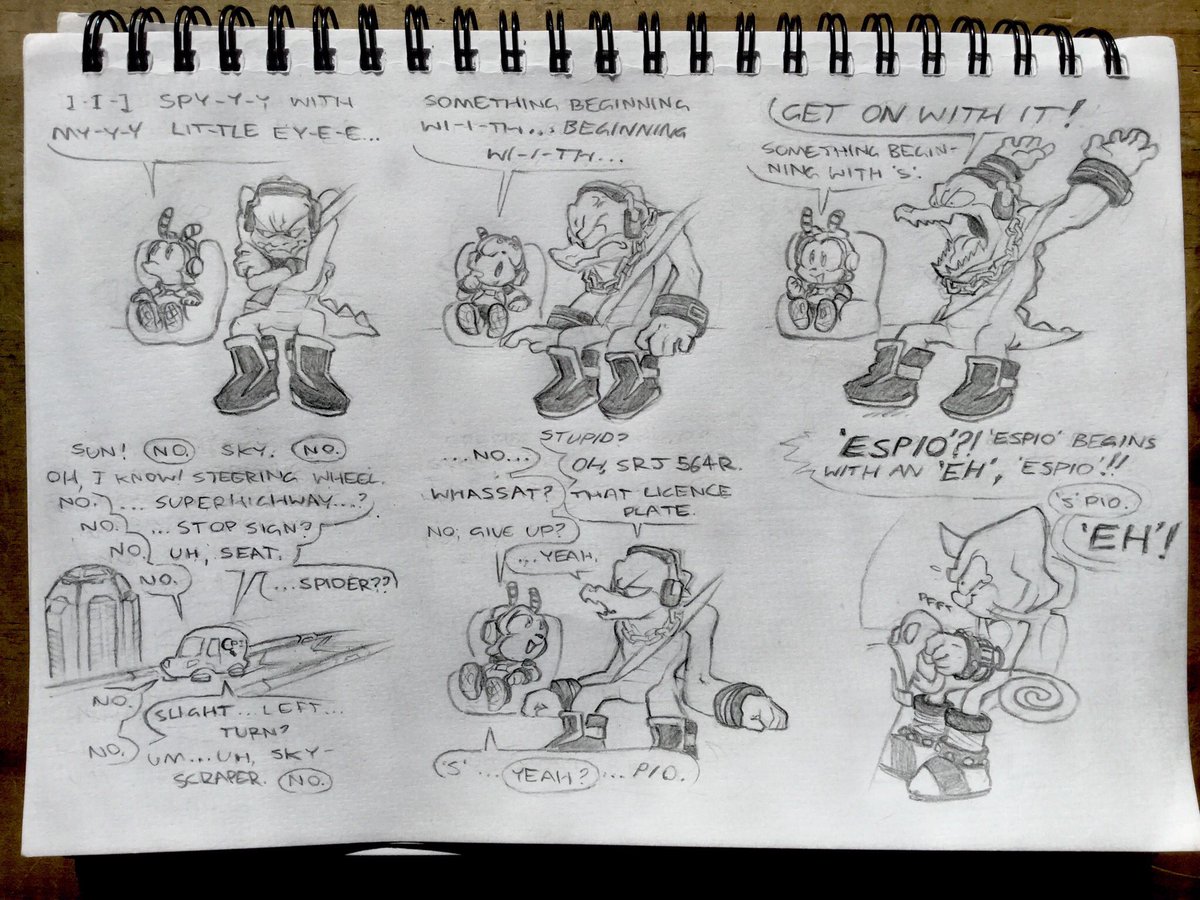 I-I-I SPY-Y-Y WITH
MY-Y-Y LIT-TLE EY-E-E...
SOMETHING BEGINNING
WI-I-TH... BEGINNING
WI-I-TH...
GET ON WITH IT!
SOMETHING BEGIN-
NING WITH 'S'.
SUN! NO. SKY. NO.
OH, I KNOW! STEERING WHEEL.
NO. ... SUPERHIGHWAY...?
NO. ... STOP SIGN?
NO. UH, SEAT.
NO.
...SPIDER??
NO.
SLIGHT... LEFT...
TURN?
NO.
UM... UH, SKY-
SCRAPER. NO.
STUPID?
...NO...
OH, SRJ 564R.
WHASSAT?
THAT LICENCE
PLATE.
NO, GIVE UP?
...YEAH.
'S'... YEAH? ...PIO.
'ESPIO'?! 'ESPIO' BEGINS
WITH AN 'EH', 'ESPIO'!!
'S' PIO.
'EH'!
PFFT